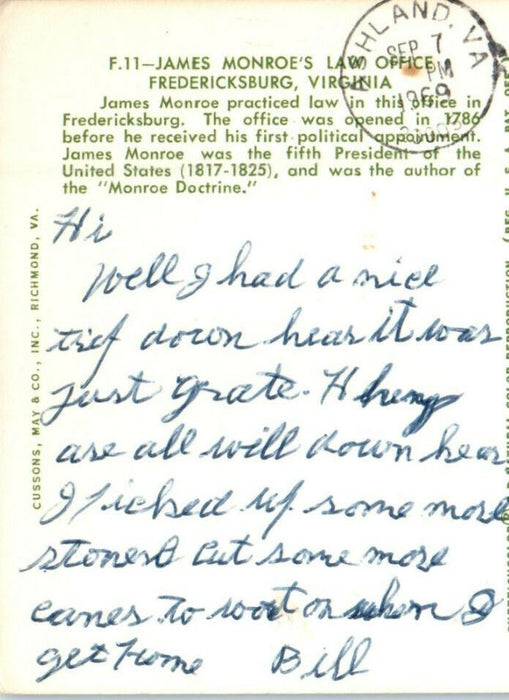 F.11—JAMES MONROE'S LAW OFFICE
FREDERICKSBURG, VIRGINIA
James Monroe practiced law in this office in
Fredericksburg. The office was opened in 1786
before he received his first political appointment.
James Monroe was the fifth President of the
United States (1817-1825), and was the author of
the "Monroe Doctrine."
ASHLAND, VA
SEP 7
PM
1969
CUSSONS, MAY & CO., INC., RICHMOND, VA.
Hi
Well I had a nice
trip down hear it was
just grate.
are all will down hear
I Picked up some more
stones & cut some more
canes to work on when I
get home Bill